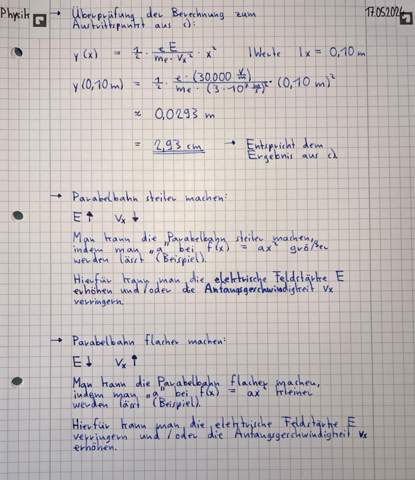 Physik
17.05.2024
→ Überprüfung der Berechnung zum
Austrittspunkt aus c):
y(x) = 1/2 · e E / (mₑ · vₓ²) · x² | Werte | x = 0,10 m
y(0,10 m) = 1/2 · e · (30.000 V/m) / (mₑ · (3 · 10⁷ m/s)²) · (0,10 m)²
≈ 0,0293 m
= 2,93 cm → Entspricht dem
Ergebnis aus c).
→ Parabelbahn steiler machen:
E ↑ vₓ ↓
Man kann die Parabelbahn steiler machen,
indem man „a" bei f(x) = ax² größer
werden lässt (Beispiel).
Hierfür kann man die elektrische Feldstärke E
erhöhen und/oder die Anfangsgeschwindigkeit vₓ
verringern.
→ Parabelbahn flacher machen:
E ↓ vₓ ↑
Man kann die Parabelbahn flacher machen,
indem man „a" bei f(x) = ax² kleiner
werden lässt (Beispiel).
Hierfür kann man die elektrische Feldstärke E
verringern und/oder die Anfangsgeschwindigkeit vₓ
erhöhen.